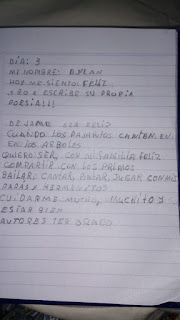 DÍA: 3
MI NOMBRE: DYLAN
HOY ME SIENTO: FELIZ
3RO C ESCRIBE SU PROPIA
POESIA!!!
DEJAME SER FELIZ
CUANDO LOS PAJARITOS CANTEN EN
EN LOS ARBOLES
QUIERO SER, CON MI FAMILIA FELIZ
COMPARTIR CON LOS PRIMOS
BAILAR, CANTAR, PINTAR, JUGAR CON MIS
PAPAS Y HERMANITOS
CUIDARME MUCHO, MUCHITO Y
ESTAR BIEN
AUTORES 3RO GRADO